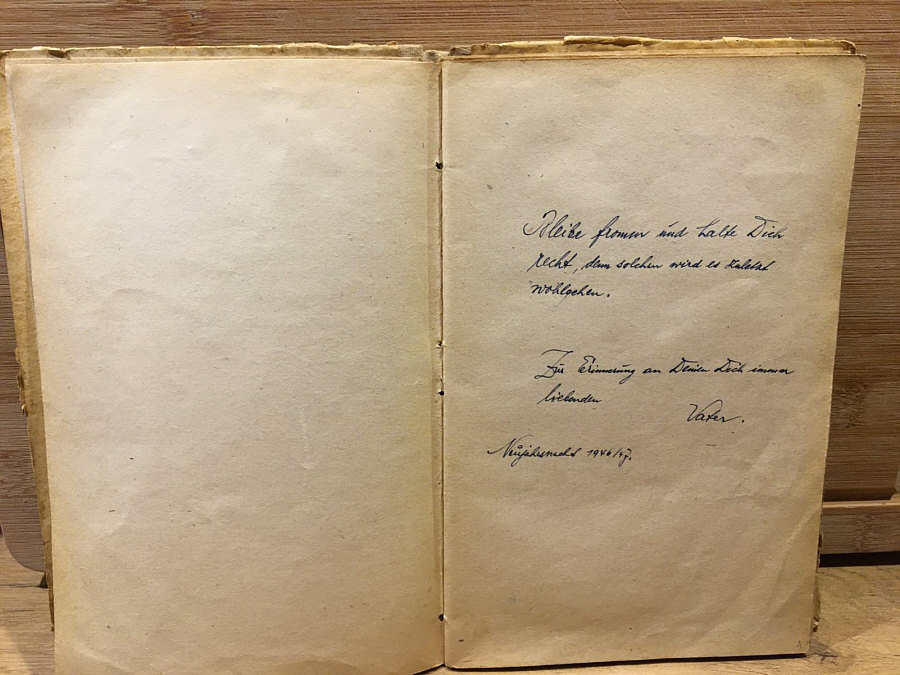 Bleibe fromm und halte Dich
recht, denn solchen wird es zuletzt
wohlgehen.
Zur Erinnerung an Deinen Dich immer
liebenden
Vater.
Neujahrsnacht 1946/47.